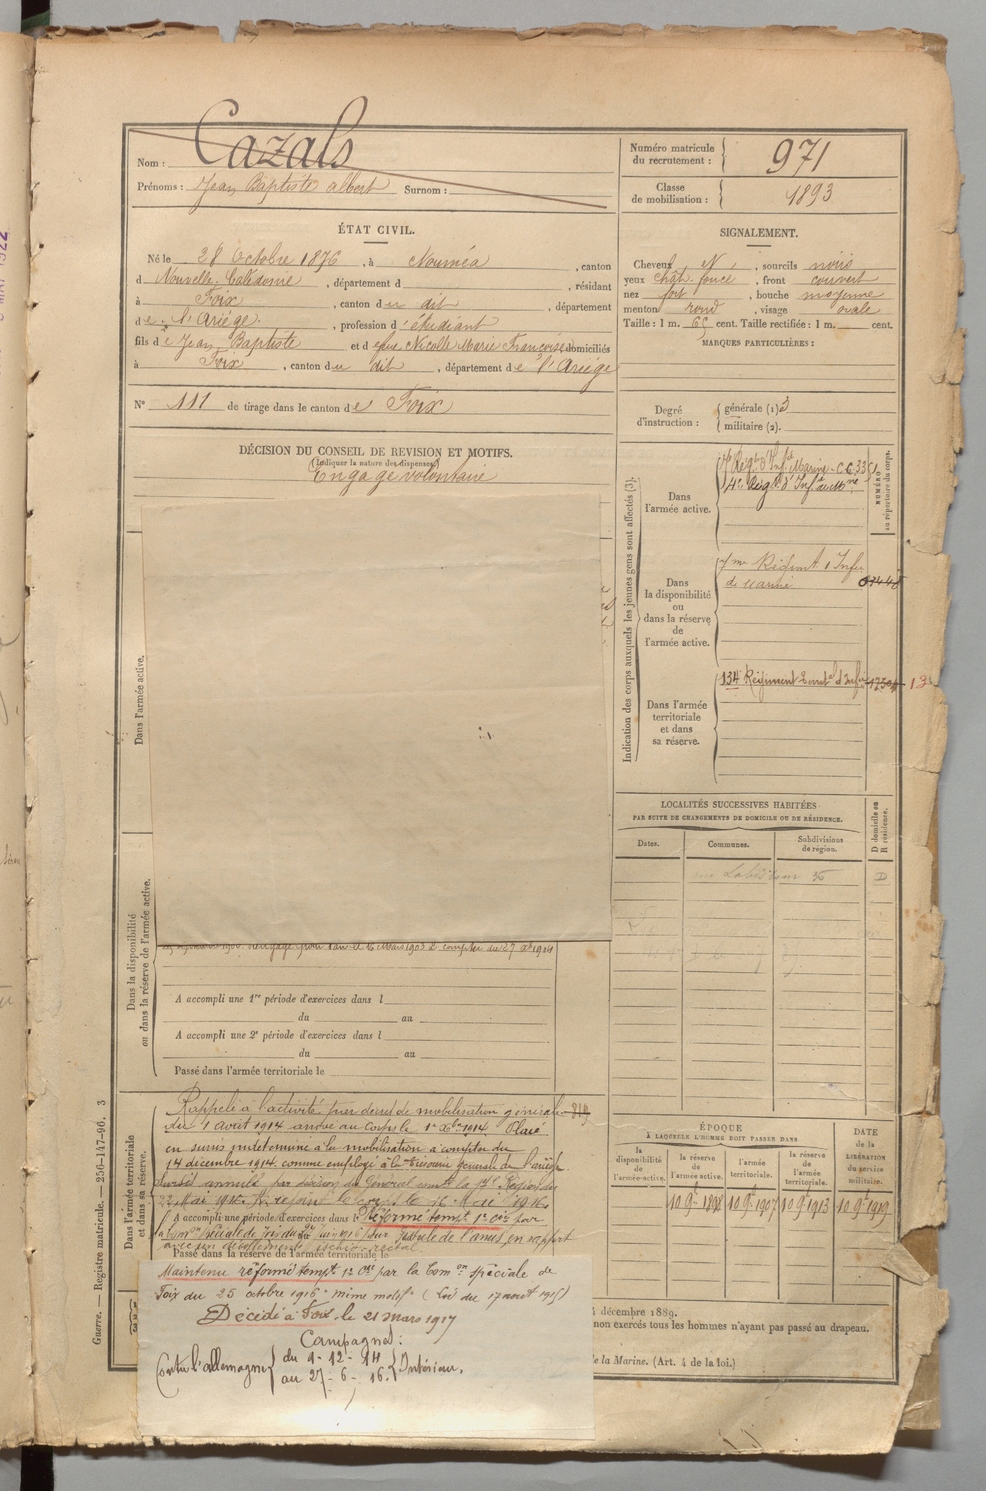 Nom : Cazals
Prénoms : Jean Baptiste albert Surnom :
Numéro matricule du recrutement : 971
Classe de mobilisation : 1893
ÉTAT CIVIL.
Né le 28 Octobre 1876, à Nouméa, canton
d Nouvelle Calédonie, département d , résidant
à Foix, canton du dit, département
de l'Ariége, profession d'étudiant
fils de Jean Baptiste et d Nicolle Marie Françoise domiciliés
à Foix, canton du dit, département de l'Ariége
N° 111 de tirage dans le canton de Foix
SIGNALEMENT.
Cheveux N, sourcils noirs
yeux chât. foncé, front couvert
nez fort, bouche moyenne
menton rond, visage ovale
Taille : 1 m. 65 cent. Taille rectifiée : 1 m. cent.
MARQUES PARTICULIÈRES :
Degré d'instruction : générale (1) 3
militaire (2).
DÉCISION DU CONSEIL DE REVISION ET MOTIFS.
(Indiquer la nature des dispenses)
Engagé volontaire
Indication des corps auxquels les jeunes gens sont affectés (3).
NUMÉRO au répertoire du corps.
Dans l'armée active.
4e Régt d'Infie de Mne
Dans la disponibilité ou dans la réserve de l'armée active.
7me Régiment d'Infie
de marine
Dans l'armée territoriale et dans sa réserve.
134 Régiment territ al d'Infie
LOCALITÉS SUCCESSIVES HABITÉES
PAR SUITE DE CHANGEMENTS DE DOMICILE OU DE RÉSIDENCE.
Dates. Communes. Subdivisions de région. D domicile ou R résidence.
D
Dans l'armée active.
Dans la disponibilité ou dans la réserve de l'armée active.
A accompli une 1re période d'exercices dans l
du au
A accompli une 2e période d'exercices dans l
du au
Passé dans l'armée territoriale le
Dans l'armée territoriale et dans sa réserve.
Rappelé à l'activité par décret de mobilisation générale
du 1 Août 1914 arrivé au corps le 1er Xbre 1914. Placé
en sursis indéterminé à la mobilisation à compter du
14 décembre 1914. comme employé à la trésorerie générale de l'ariège
sursis annulé par décision du Général comt la 17e Région du
22 Mai 1916. rejoint le corps le 26 Mai 1916.
A accompli une période d'exercices dans l Réformé tempt 1re Cie par
Passé dans la réserve de l'armée territoriale le
Maintenu réformé tempt par la Comon spéciale de
Foix du 25 octobre 1916 même motif (Loi du 17 aout 1915)
Décédé à Foix le 21 mars 1917
Campagne :
Contre l'allemagne { du 1-12-14
au 27-6-16. } Intérieur.
ÉPOQUE
À LAQUELLE L'HOMME DOIT PASSER DANS
DATE de la LIBÉRATION du service militaire.
la disponibilité de l'armée active. la réserve de l'armée active. l'armée territoriale. la réserve de l'armée territoriale.
10 9bre 1898 10 9bre 1907 10 9bre 1913 10 9bre 1919
décembre 1889.
non exercés tous les hommes n'ayant pas passé au drapeau.
de la Marine. (Art. 4 de la loi.)
Guerre. — Registre matricule. — 256-147-96. 3